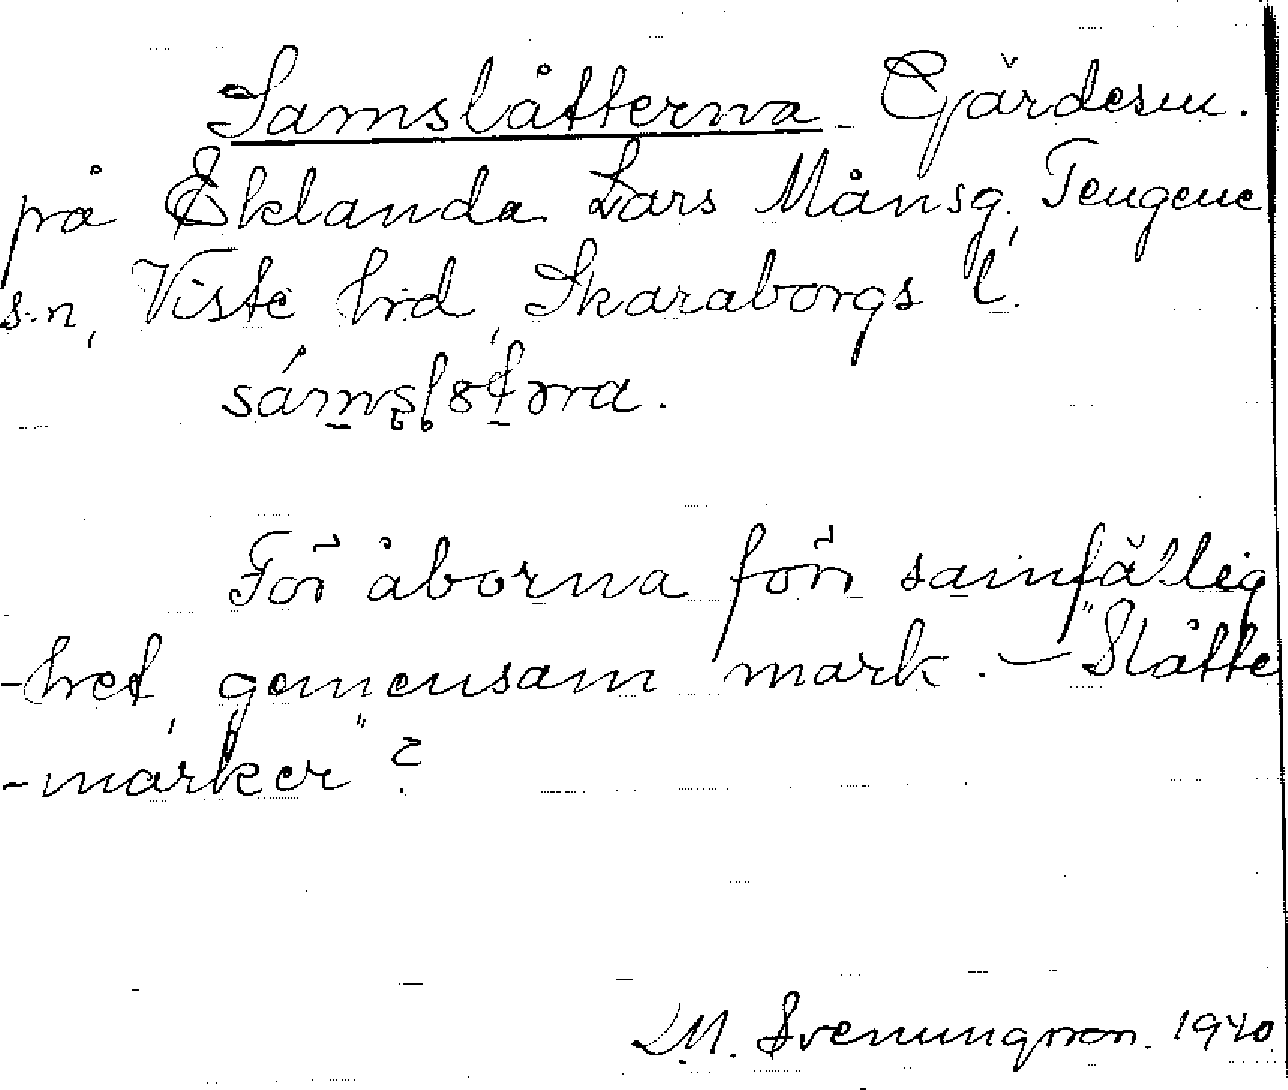 Samslåtterna Gärdesn.
på Eklanda Lars Månsg. Tengene
s-n, Viste hrd, Skaraborgs l.
För åborna förr samfällig
-het, gemensam mark. — "Slåtte
-marker"?
LM. Svenungsson. 1940.